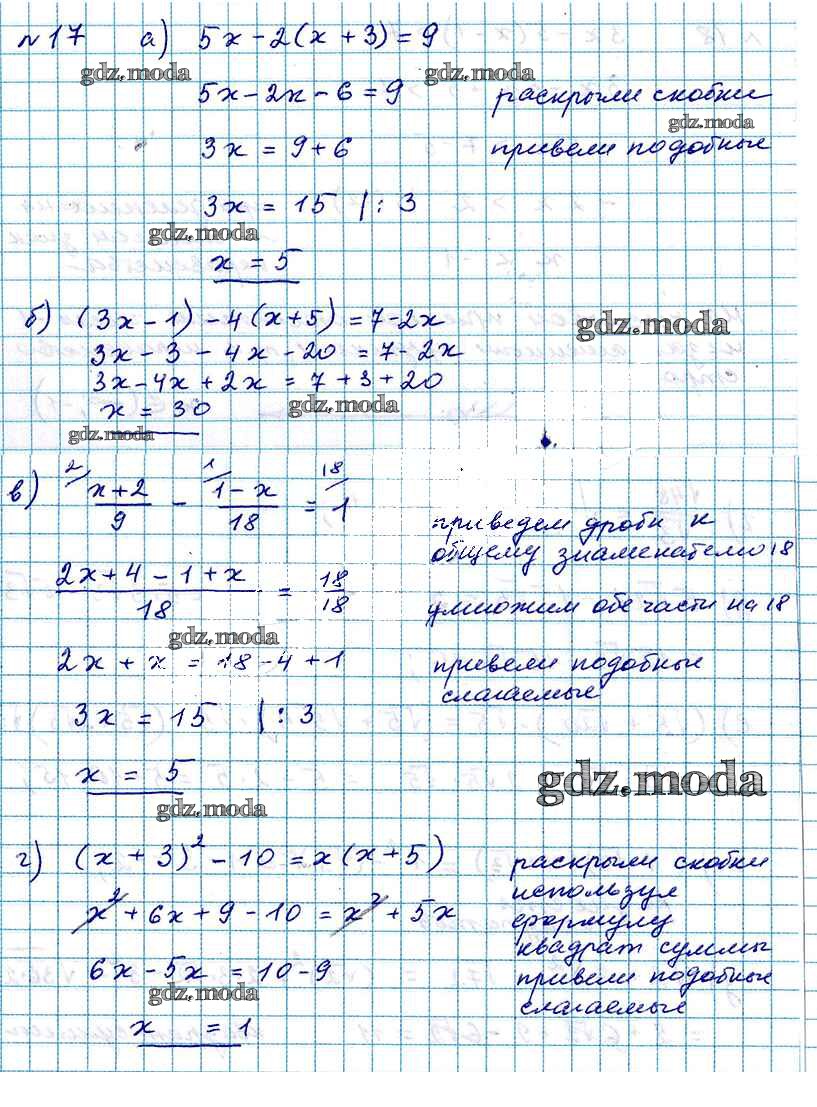 №17 а) 5x - 2(x + 3) = 9
gdz.moda
5x - 2x - 6 = 9 раскрыли скобки
gdz.moda
3x = 9 + 6 привели подобные
3x = 15 | : 3
gdz.moda
x = 5
б) (3x - 1) - 4(x + 5) = 7 - 2x
gdz.moda
3x - 3 - 4x - 20 = 7 - 2x
3x - 4x + 2x = 7 + 3 + 20
x = 30
gdz.moda
gdz.moda
в) 2/ (x + 2)/9 - 1/ (1 - x)/18 = 18/ 1
приведем дроби к
общему знаменателю 18
(2x + 4 - 1 + x)/18 = 18/18
умножим обе части на 18
gdz.moda
2x + x = 18 - 4 + 1 привели подобные
слагаемые
3x = 15 | : 3
x = 5
gdz.moda
gdz.moda
г) (x + 3)² - 10 = x(x + 5) раскрыли скобки
используя
x² + 6x + 9 - 10 = x² + 5x формулу
квадрат суммы
6x - 5x = 10 - 9 привели подобные
gdz.moda
слагаемые
x = 1